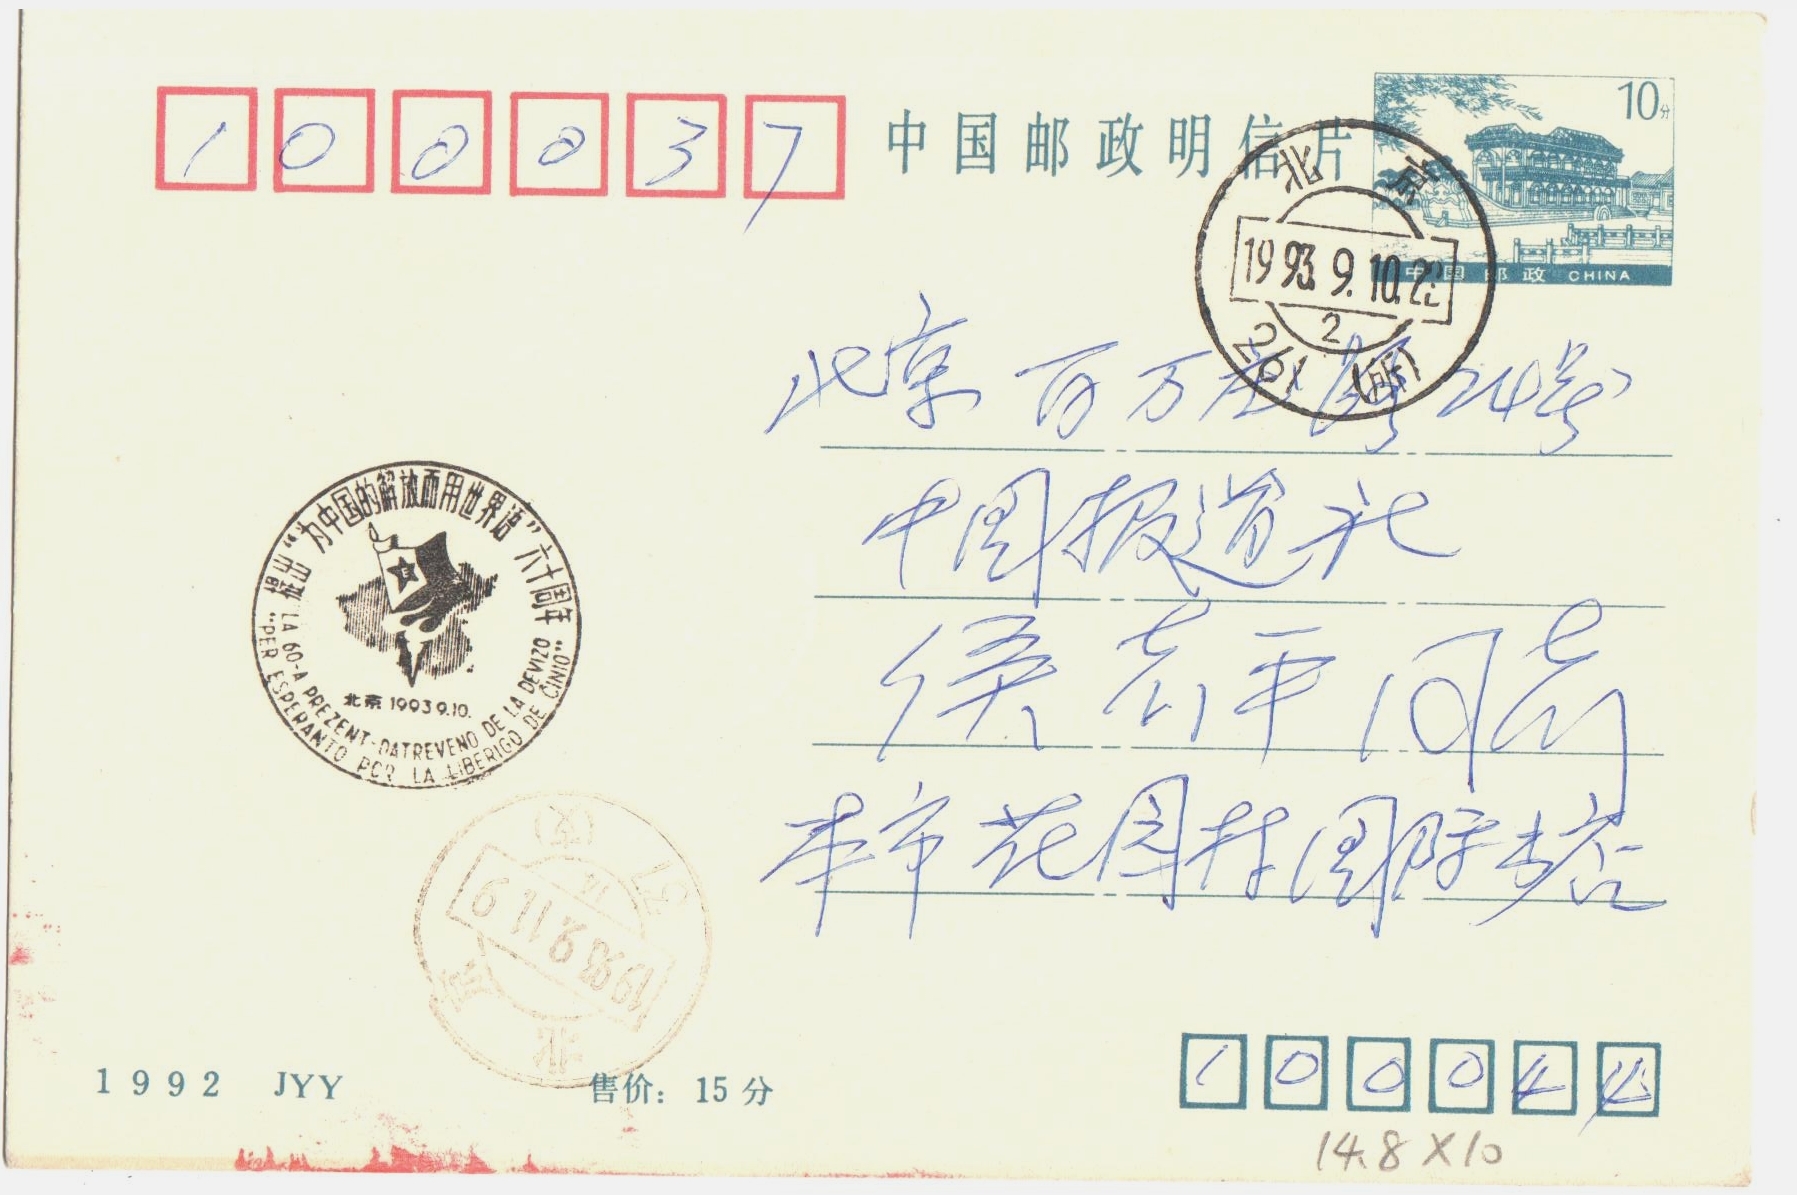 100037
中国邮政明信片
10分
中国邮政 CHINA
北京
1993.9.10.2
2
261 (所)
北京百万庄路24号
中国报道社
侯志平同志
本市花园村国际书店
出版“为中国的解放而用世界语”六十周年
北京 1993.9.10.
LA 60-A PREZENT-DATREVENO DE LA DEVIZO
"PER ESPERANTO POR LA LIBERIGO DE ĈINIO"
北京
1993.9.11.9
14
37 (支)
1992 JYY
售价: 15 分
100044
14.8×10